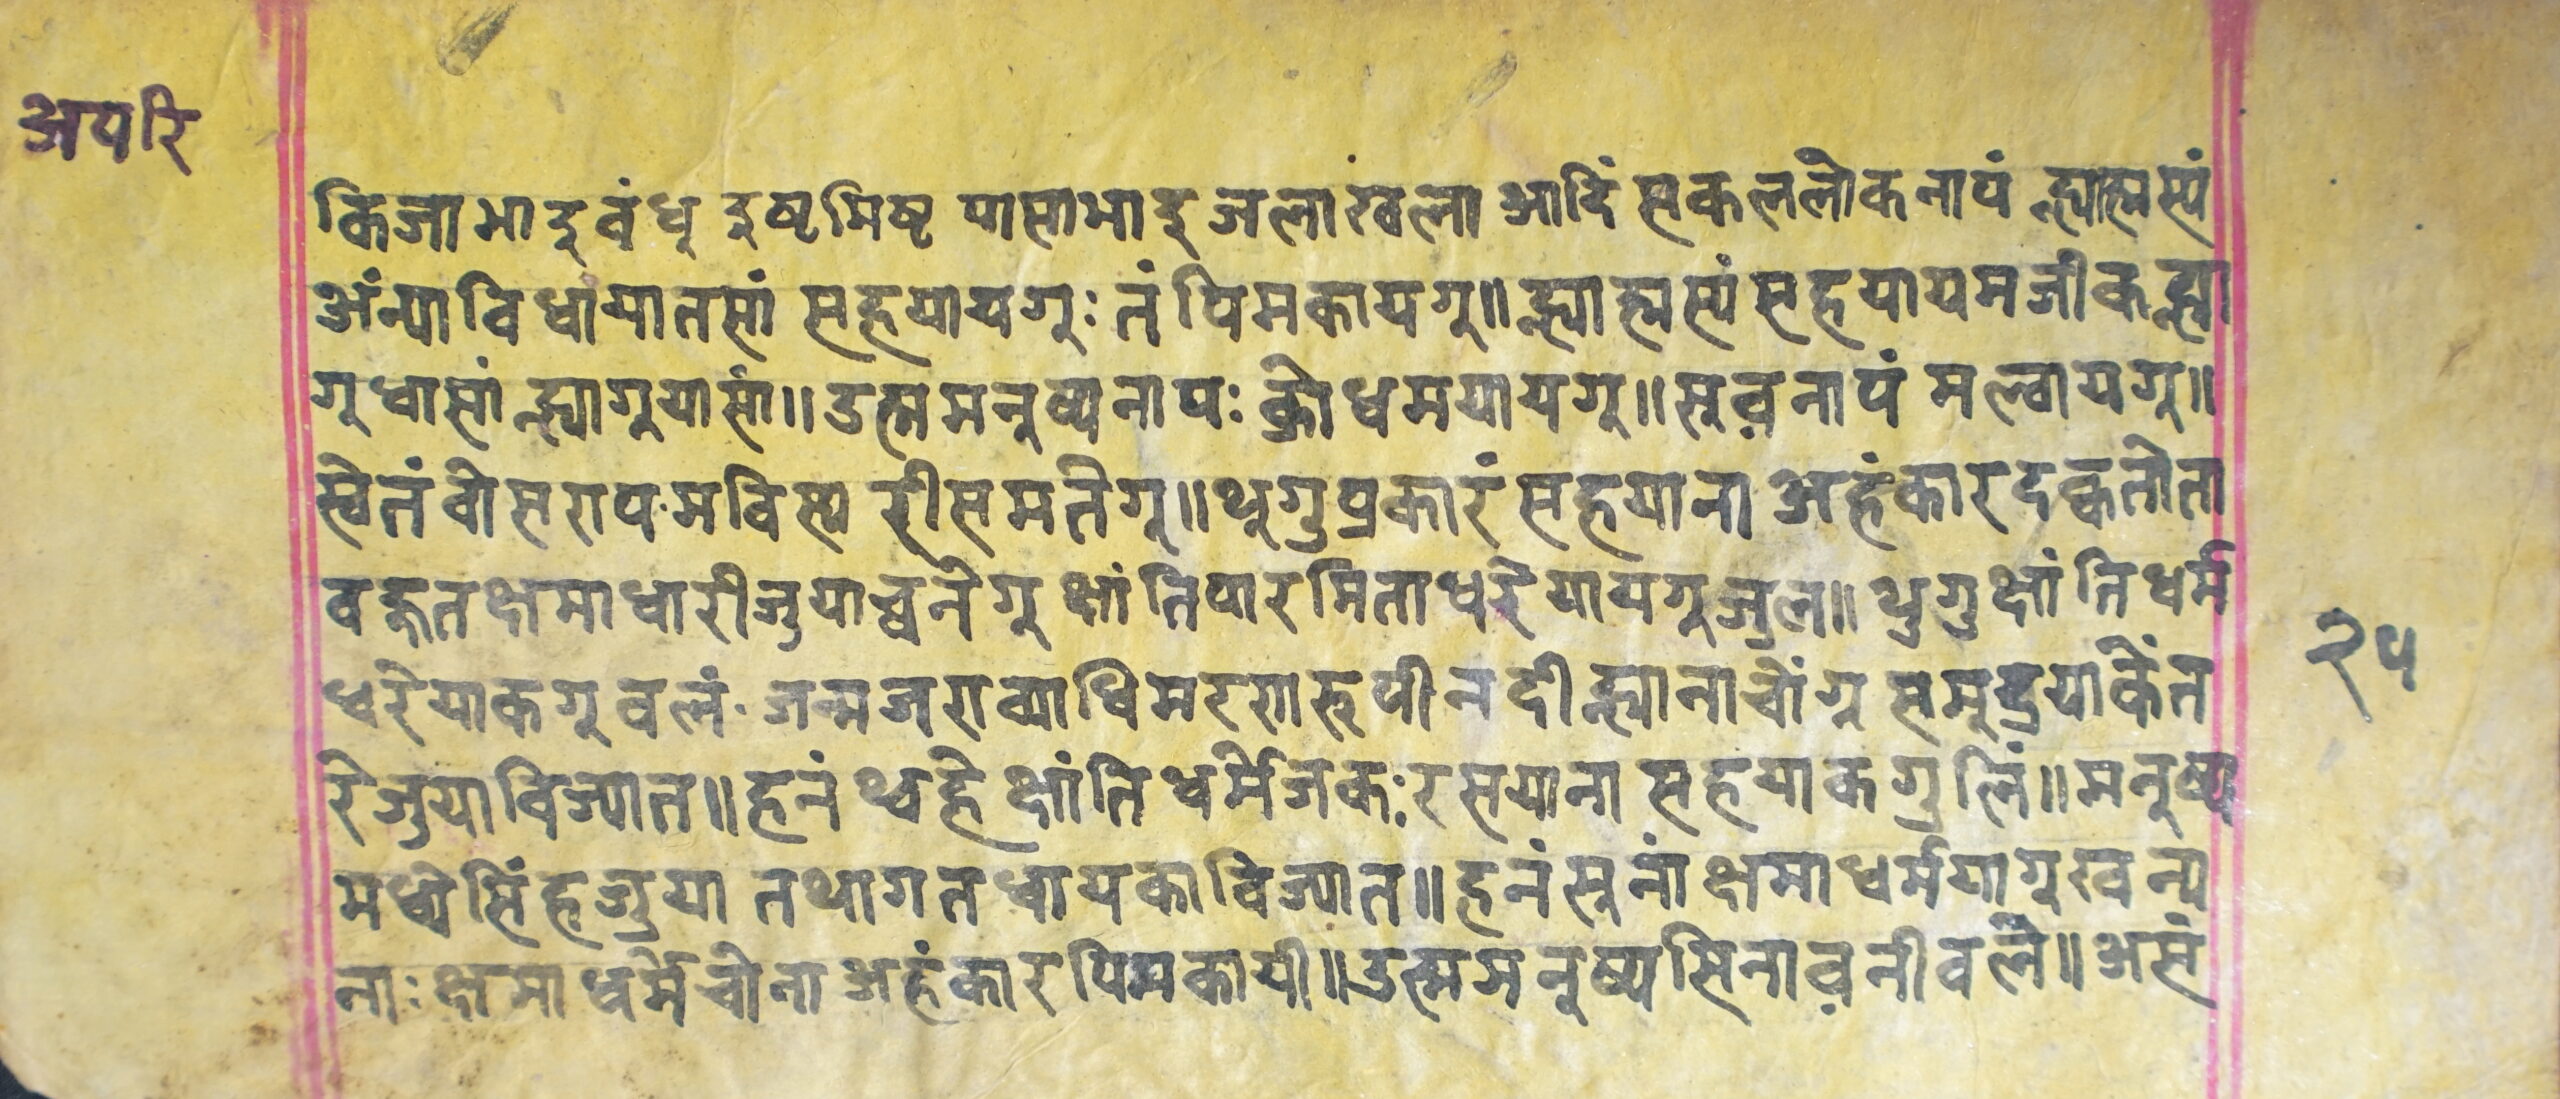 अपरि
किजाभादुवंधु दुष्टमिष्ट पासाभादु जलाखंला आदिं सकललोकनापं ह्याह्मस्यं
अंन्याविधायातसां सहयायगुः तंपिमकायगु॥ ह्याह्मस्यं सहयायमजीकह्ला
गुधासां ह्यागुयासां॥ उत्ममनुष्यनापः क्रोधमयायगु॥ सुव़नापं मल्वायगु॥
स्वेतं वोसरापमविस्य रीसमतेगु॥ थुगुप्रकारं सहयाना अहंकारदक्वतोता
वहुतक्षमाधारीजुयाच्वनेगु क्षांतिपारमिताधरेयायगुजुल॥ थुगुक्षांतिधर्म
धरेयाकगुवलं जन्मजराव्याधिमररारूपीनदीह्यानाचोंगु समुद्रयाकेंत
रेजुयाविज्यात॥ हनं थ्वहे क्षांतिधर्मेजकःरसयाना सहयाकगुलिं॥ मनुष्य
मध्येसिंहजुया तथागतधायकाविज्यात॥ हनंसुनां क्षमाधर्मयागुखन्य
नाः क्षमाधर्मेचोना अहंकारपिमकायी॥ उत्ममनुष्यसिनाव़नीवलें॥ असं
२५